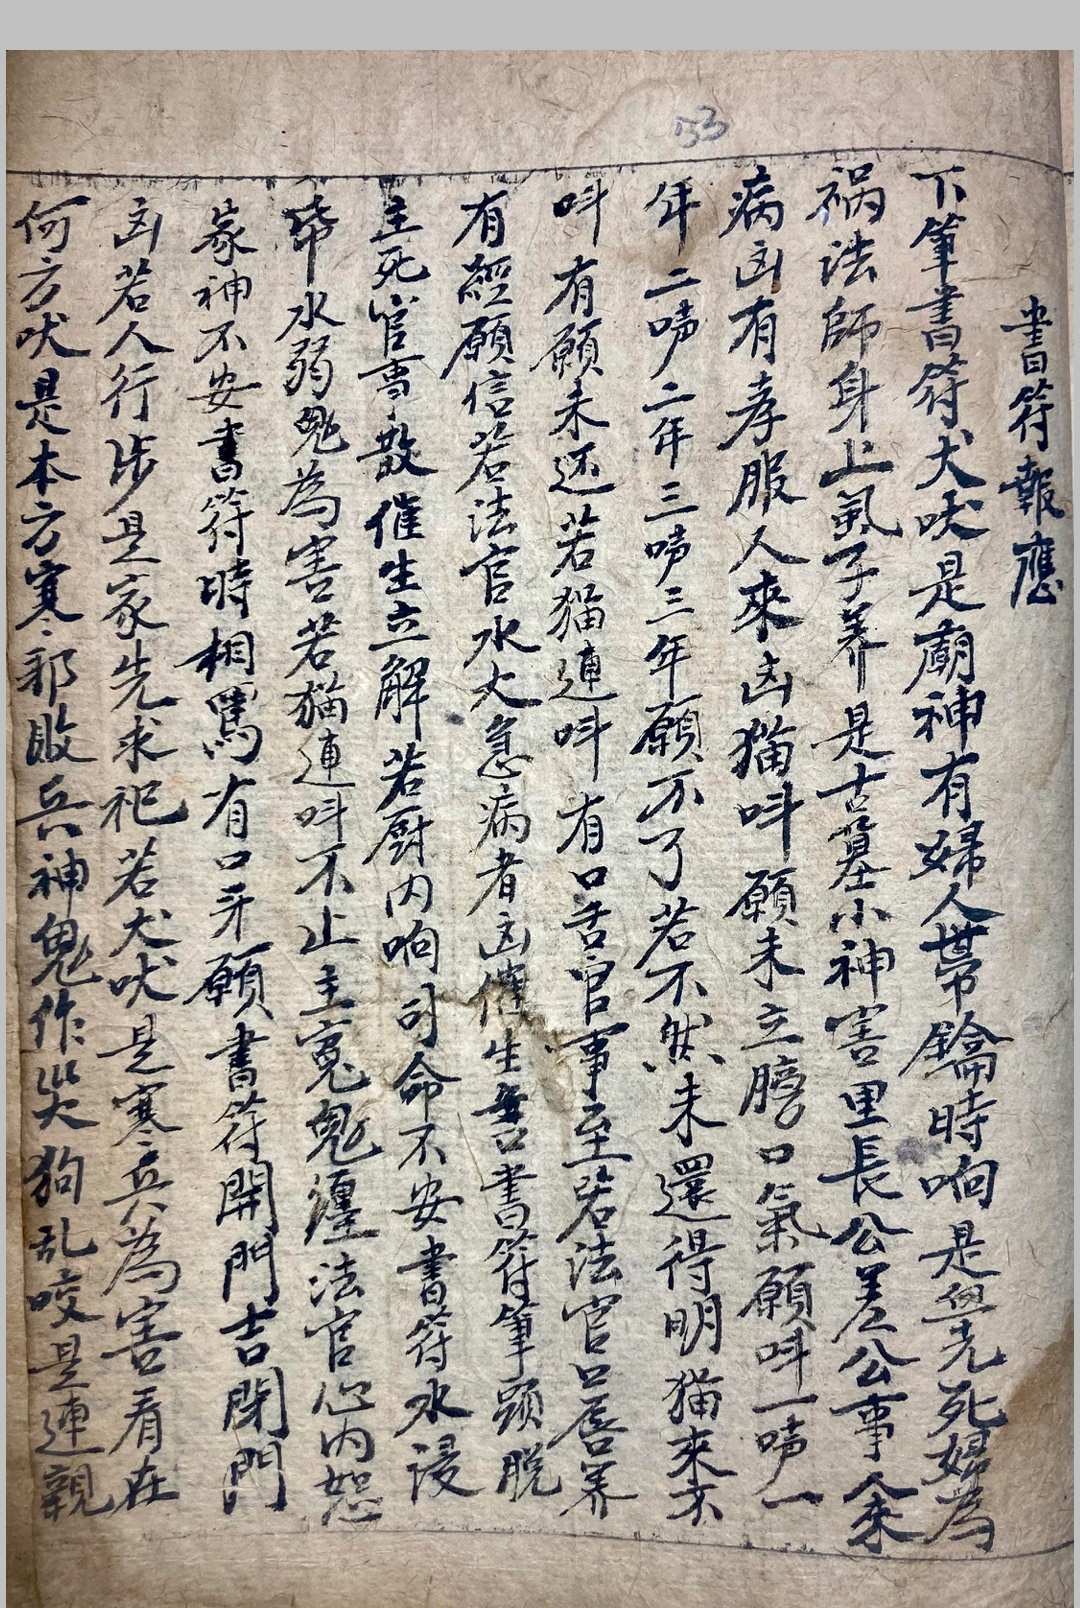 53
書符報應
下筆書符犬吠是廟神有婦人帶鑰時响是血光死婦為
禍法師身上虱子养是古墓小神害里長公差公事人来
病凶有孝服人來凶猫呌願未立膽口氣願呌一啼一
年二啼二年三啼三年願不了若不然未還得明猫來不
呌有願未还若猫連呌有口舌官事至若法官口唇养
有經願信若法官水大急病者凶催生吉書符筆頭脱
主死官事散催生立解若厨内响司命不安書符水浸
帋水弱鬼為害若猫連呌不止主冤鬼纏法官心内恕
家神不安書符時相罵有口牙願書符開門吉閉門
凶若人行步是家先求祀若犬吠是寒兵為害看在
何方吠是本方寒邪敗兵神鬼作災狗乱咬是連親